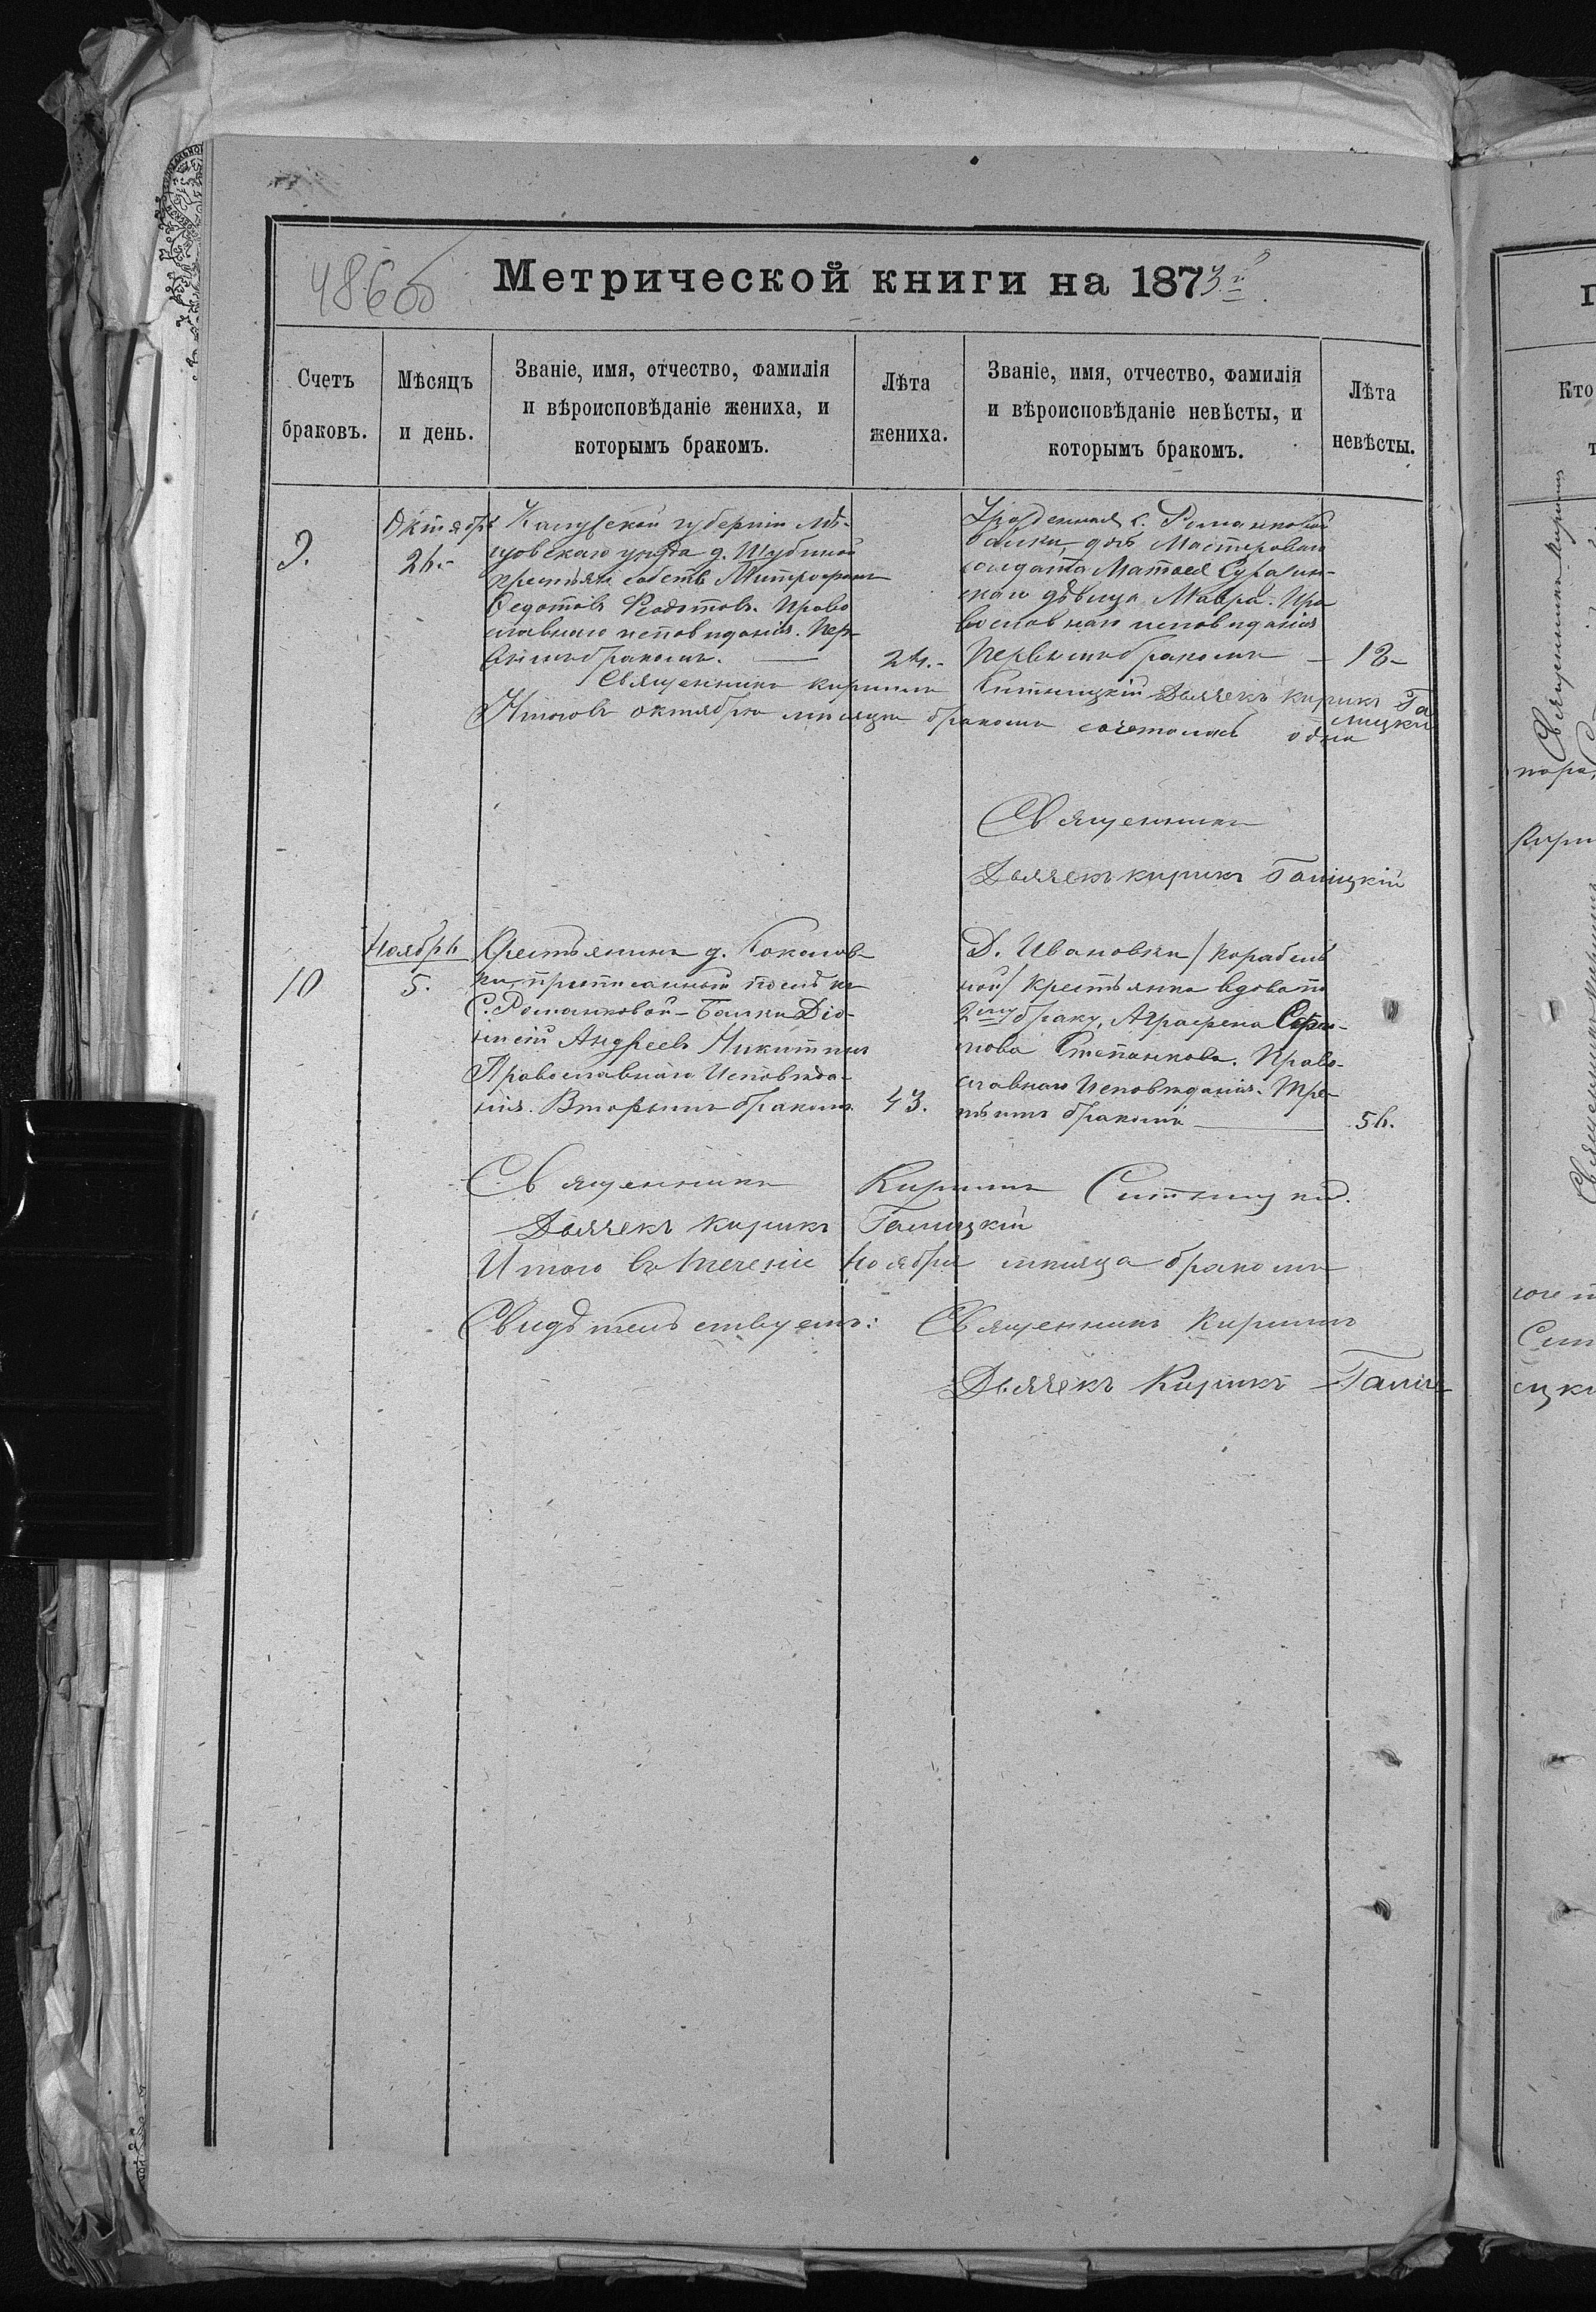 48600
Метрической книги на 1873й
Счетъ браковъ.
Мѣсяцъ и день.
Званіе, имя, отчество, фамилія
и вѣроисповѣданіе жениха, и
которымъ бракомъ.
Лѣта жениха.
Званіе, имя, отчество, фамилія
и вѣроисповѣданіе невѣсты, и
которымъ бракомъ.
Лѣта невѣсты.
9.
Октябрь
Калужской губерніи Мѣ-
щовскаго уѣзда д. Шубиной
крестьян. собств. Митрофанъ
Ѳедотовъ Ѳедотовъ. Право
славнаго исповѣданія. Пер-
вымъ бракомъ. —
24.-
Урожденная с. Романковой
Балки, дочь Мастероваго
солдата Матвея
скаго дѣвица Мавра. Пра
вославнаго исповѣданія
Первымъ бракомъ —
18-
Священникъ Кирилъ Ситницкій Дьячекъ Кирикъ Га
лицкій
Итого въ октябрѣ мѣсяцѣ бракомъ сочеталась одна
Священникъ
Дьячекъ Кирикъ Галицкій
10
Ноябрь
5.
Крестьянинъ д. Соколов-
ки, приписанный
С. Романковой-Балки Діо-
нисій Андреевъ Никитинъ
Православнаго Исповѣда-
нія. Вторымъ бракомъ.
43.
Д. Ивановки /Корабель
ной/ Крестьянка вдова по
2му браку, Аграфена
Степанкова. Право-
славнаго Исповѣданія. Тре-
тьимъ бракомъ —
56.
Священникъ Кирилъ Ситницкій.
Дьячекъ Кирикъ Галицкій
Итого въ теченіи Ноября мѣсяца бракомъ
Свидѣтельствуемъ: Священникъ Кирилъ
Дьячекъ Кирикъ Галиц
Кто
Священникъ Кирилъ
пара,
Кири
Священникъ Кирилъ
соче
Сит
цкі